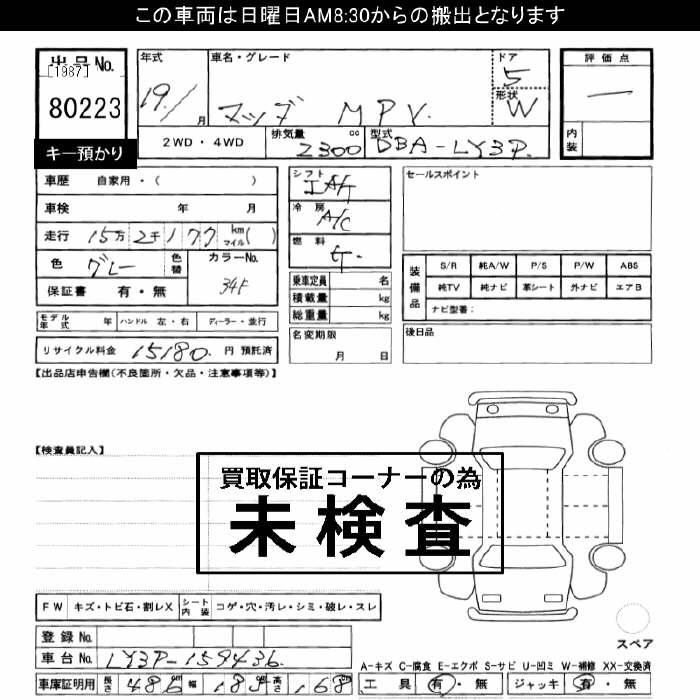 この車両は日曜日AM8:30からの搬出となります
出品No.
[1987]
80223
キー預かり
年式
19/1月
車名・グレード
マツダ MPV
ドア
5
形状
W
評価点
一
内装
2WD・4WD
排気量
2300 cc
型式
DBA-LY3P
車歴 自家用・( )
車検 年 月
走行 15万2千177 km マイル( )
色 グレー
色替
カラーNo.
34F
保証書 有・無
シフト
IAT
冷房
A/C
燃料
乗車定員 名
積載量 kg
総重量 kg
セールスポイント
装備品
S/R 純A/W P/S P/W ABS
純TV 純ナビ 革シート 外ナビ エアB
ナビ型番:
モデル年式 年 ハンドル 左・右 ディーラー・並行
名変期限
月 日
後日品
リサイクル料金 15180 円 預託済
【出品店申告欄(不良箇所・欠品・注意事項等)】
【検査員記入】
買取保証コーナーの為
未検査
FW キズ・トビ石・割レX シート内装 コゲ・穴・汚レ・シミ・破レ・スレ
スペア
登録No.
車台No. LY3P-159436
A-キズ C-腐食 E-エクボ S-サビ U-凹ミ W-補修 XX-交換済
車庫証明用 長さ 486 幅 185 高さ 168
工具 有・無 ジャッキ 有・無